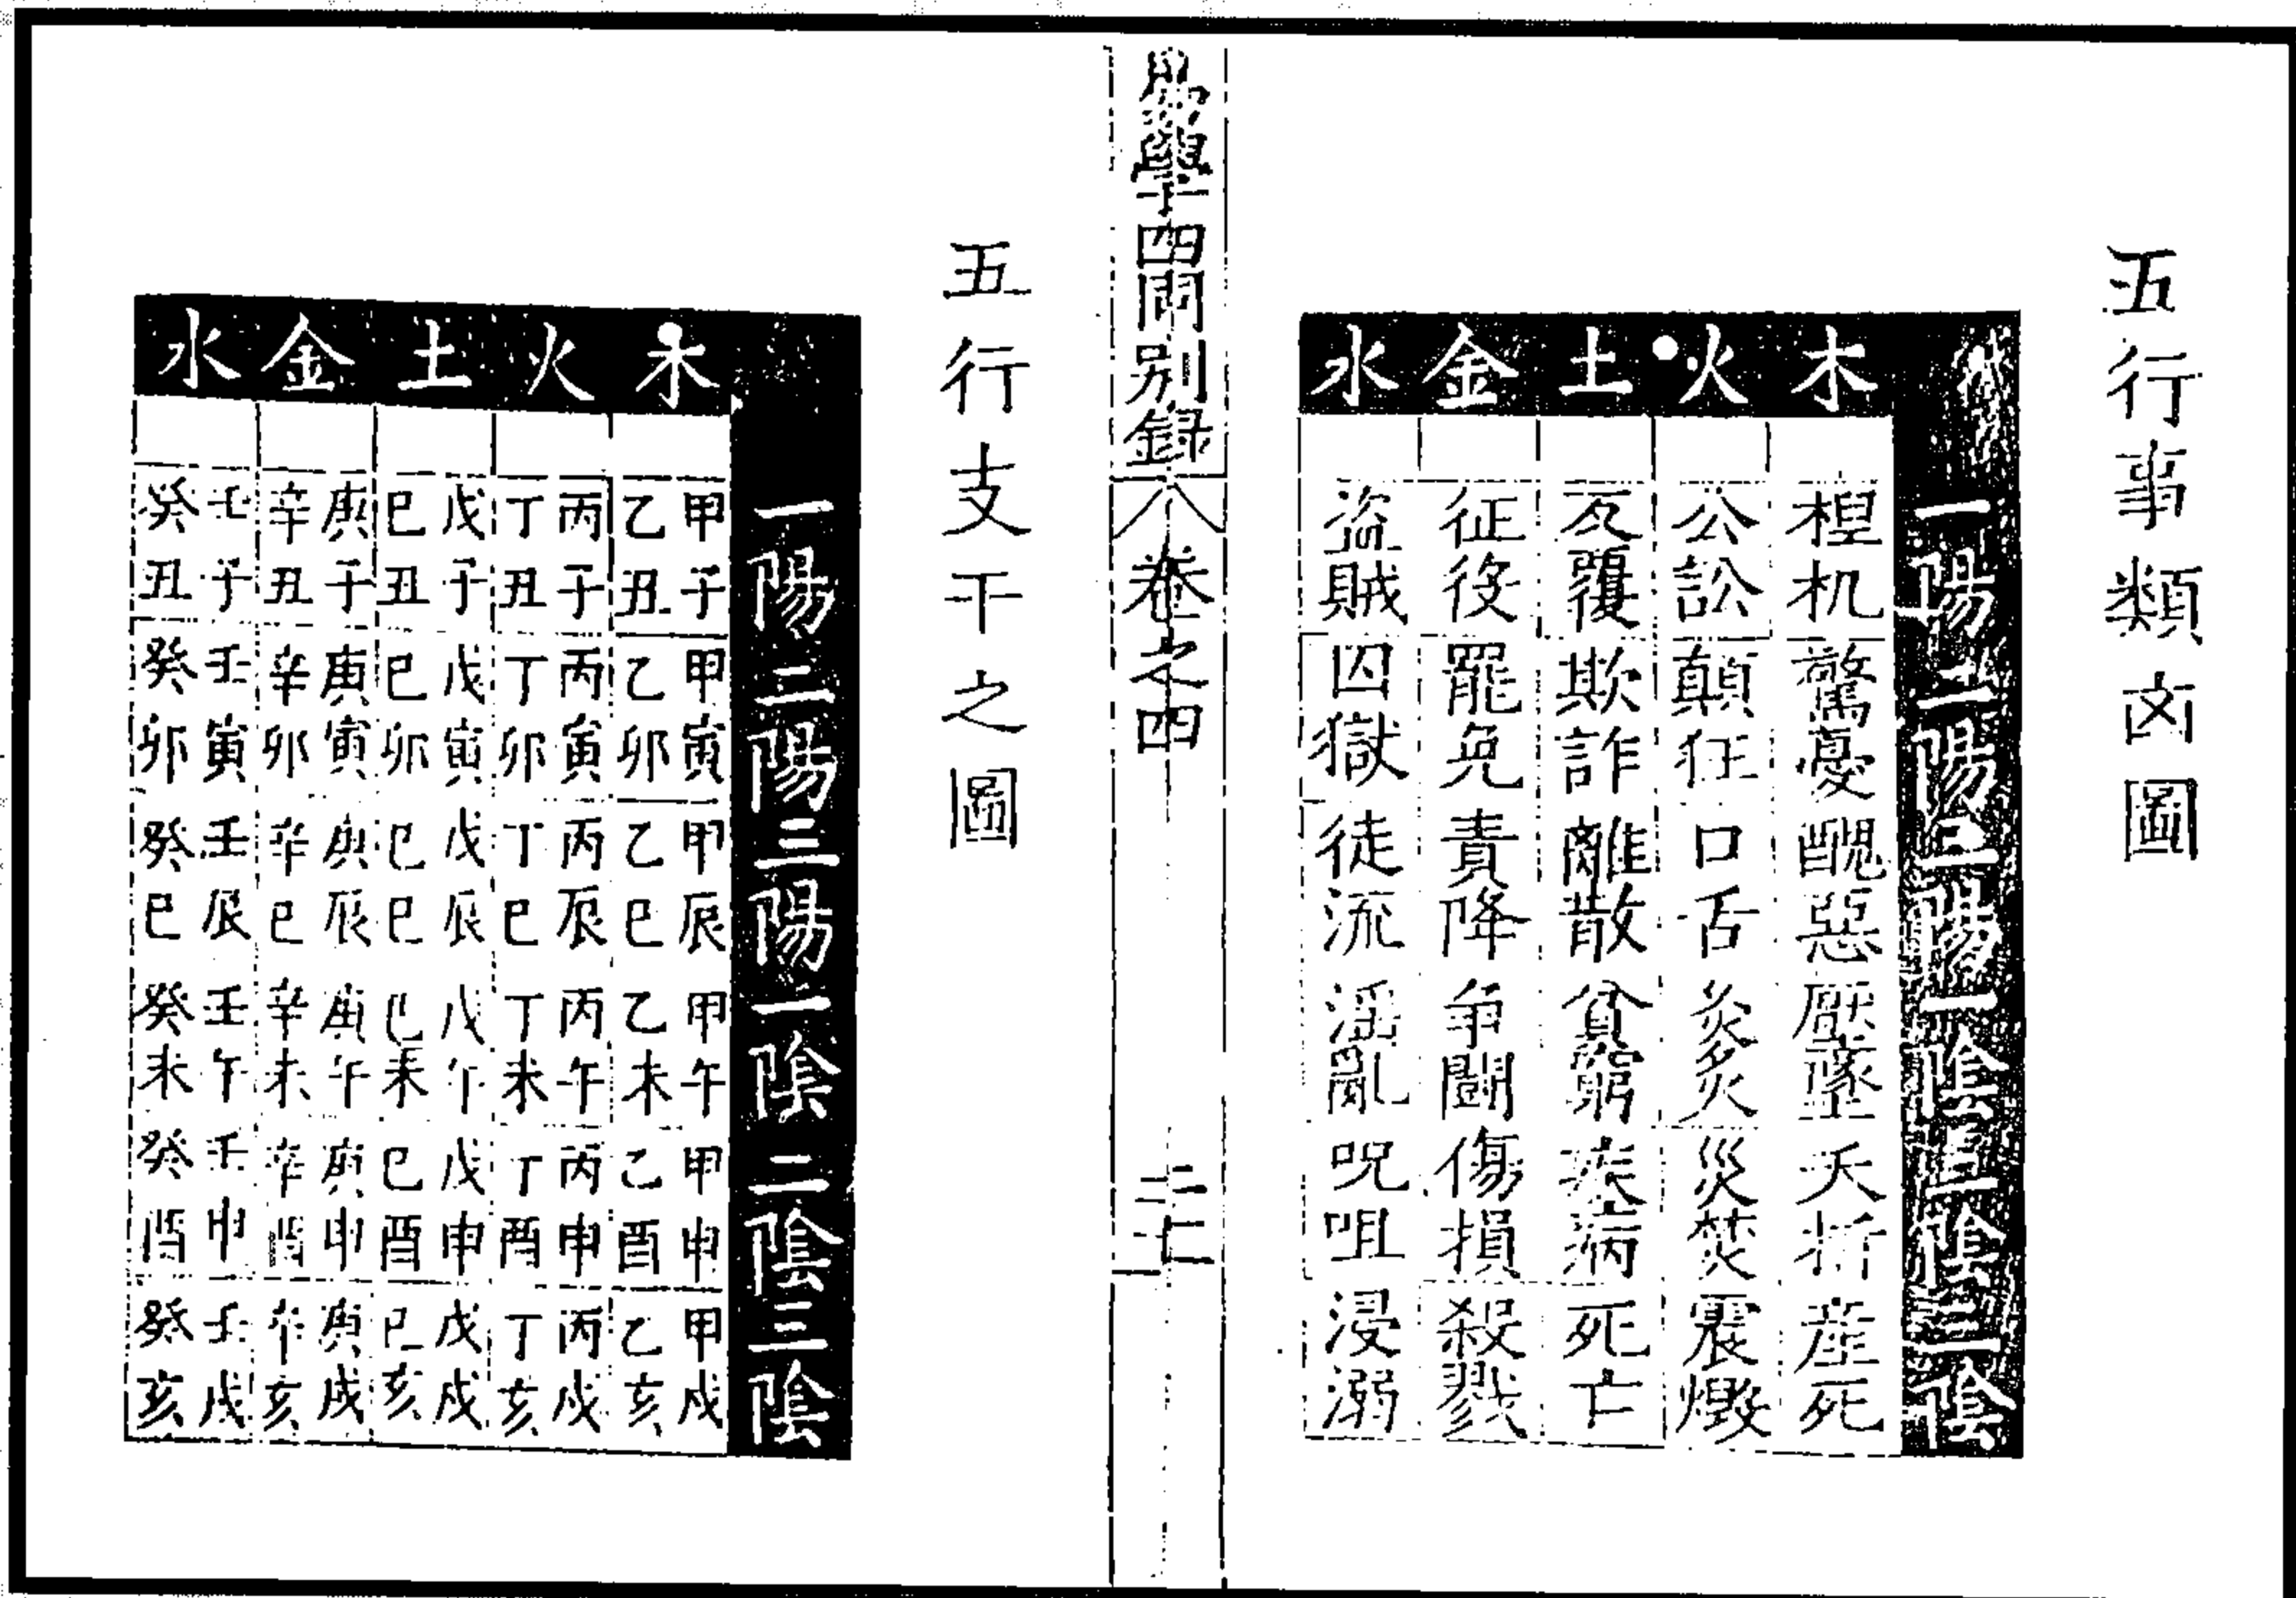 五行事類凶圖
木 火 土 金 水
一陽 二陽 三陽 一陰 二陰 三陰
桯机 驚憂 醜惡 壓墜 夭折 産死
公訟 顛狂 口舌 灸炙 災焚 震燬
反覆 欺詐 離散 貧窮 疾病 死亡
征役 罷免 責降 争鬪 傷損 殺戮
盜賊 囚獄 徒流 淫亂 呪咀 浸溺
學四問別録 卷之四
五行支干之圖
木 火 土 金 水
一陽 二陽 三陽 一陰 二陰 三陰
甲子 甲寅 甲辰 甲午 甲申 甲戌
乙丑 乙卯 乙巳 乙未 乙酉 乙亥
丙子 丙寅 丙辰 丙午 丙申 丙戌
丁丑 丁卯 丁巳 丁未 丁酉 丁亥
戊子 戊寅 戊辰 戊午 戊申 戊戌
己丑 己卯 己巳 己未 己酉 己亥
庚子 庚寅 庚辰 庚午 庚申 庚戌
辛丑 辛卯 辛巳 辛未 辛酉 辛亥
壬子 壬寅 壬辰 壬午 壬申 壬戌
癸丑 癸卯 癸巳 癸未 癸酉 癸亥